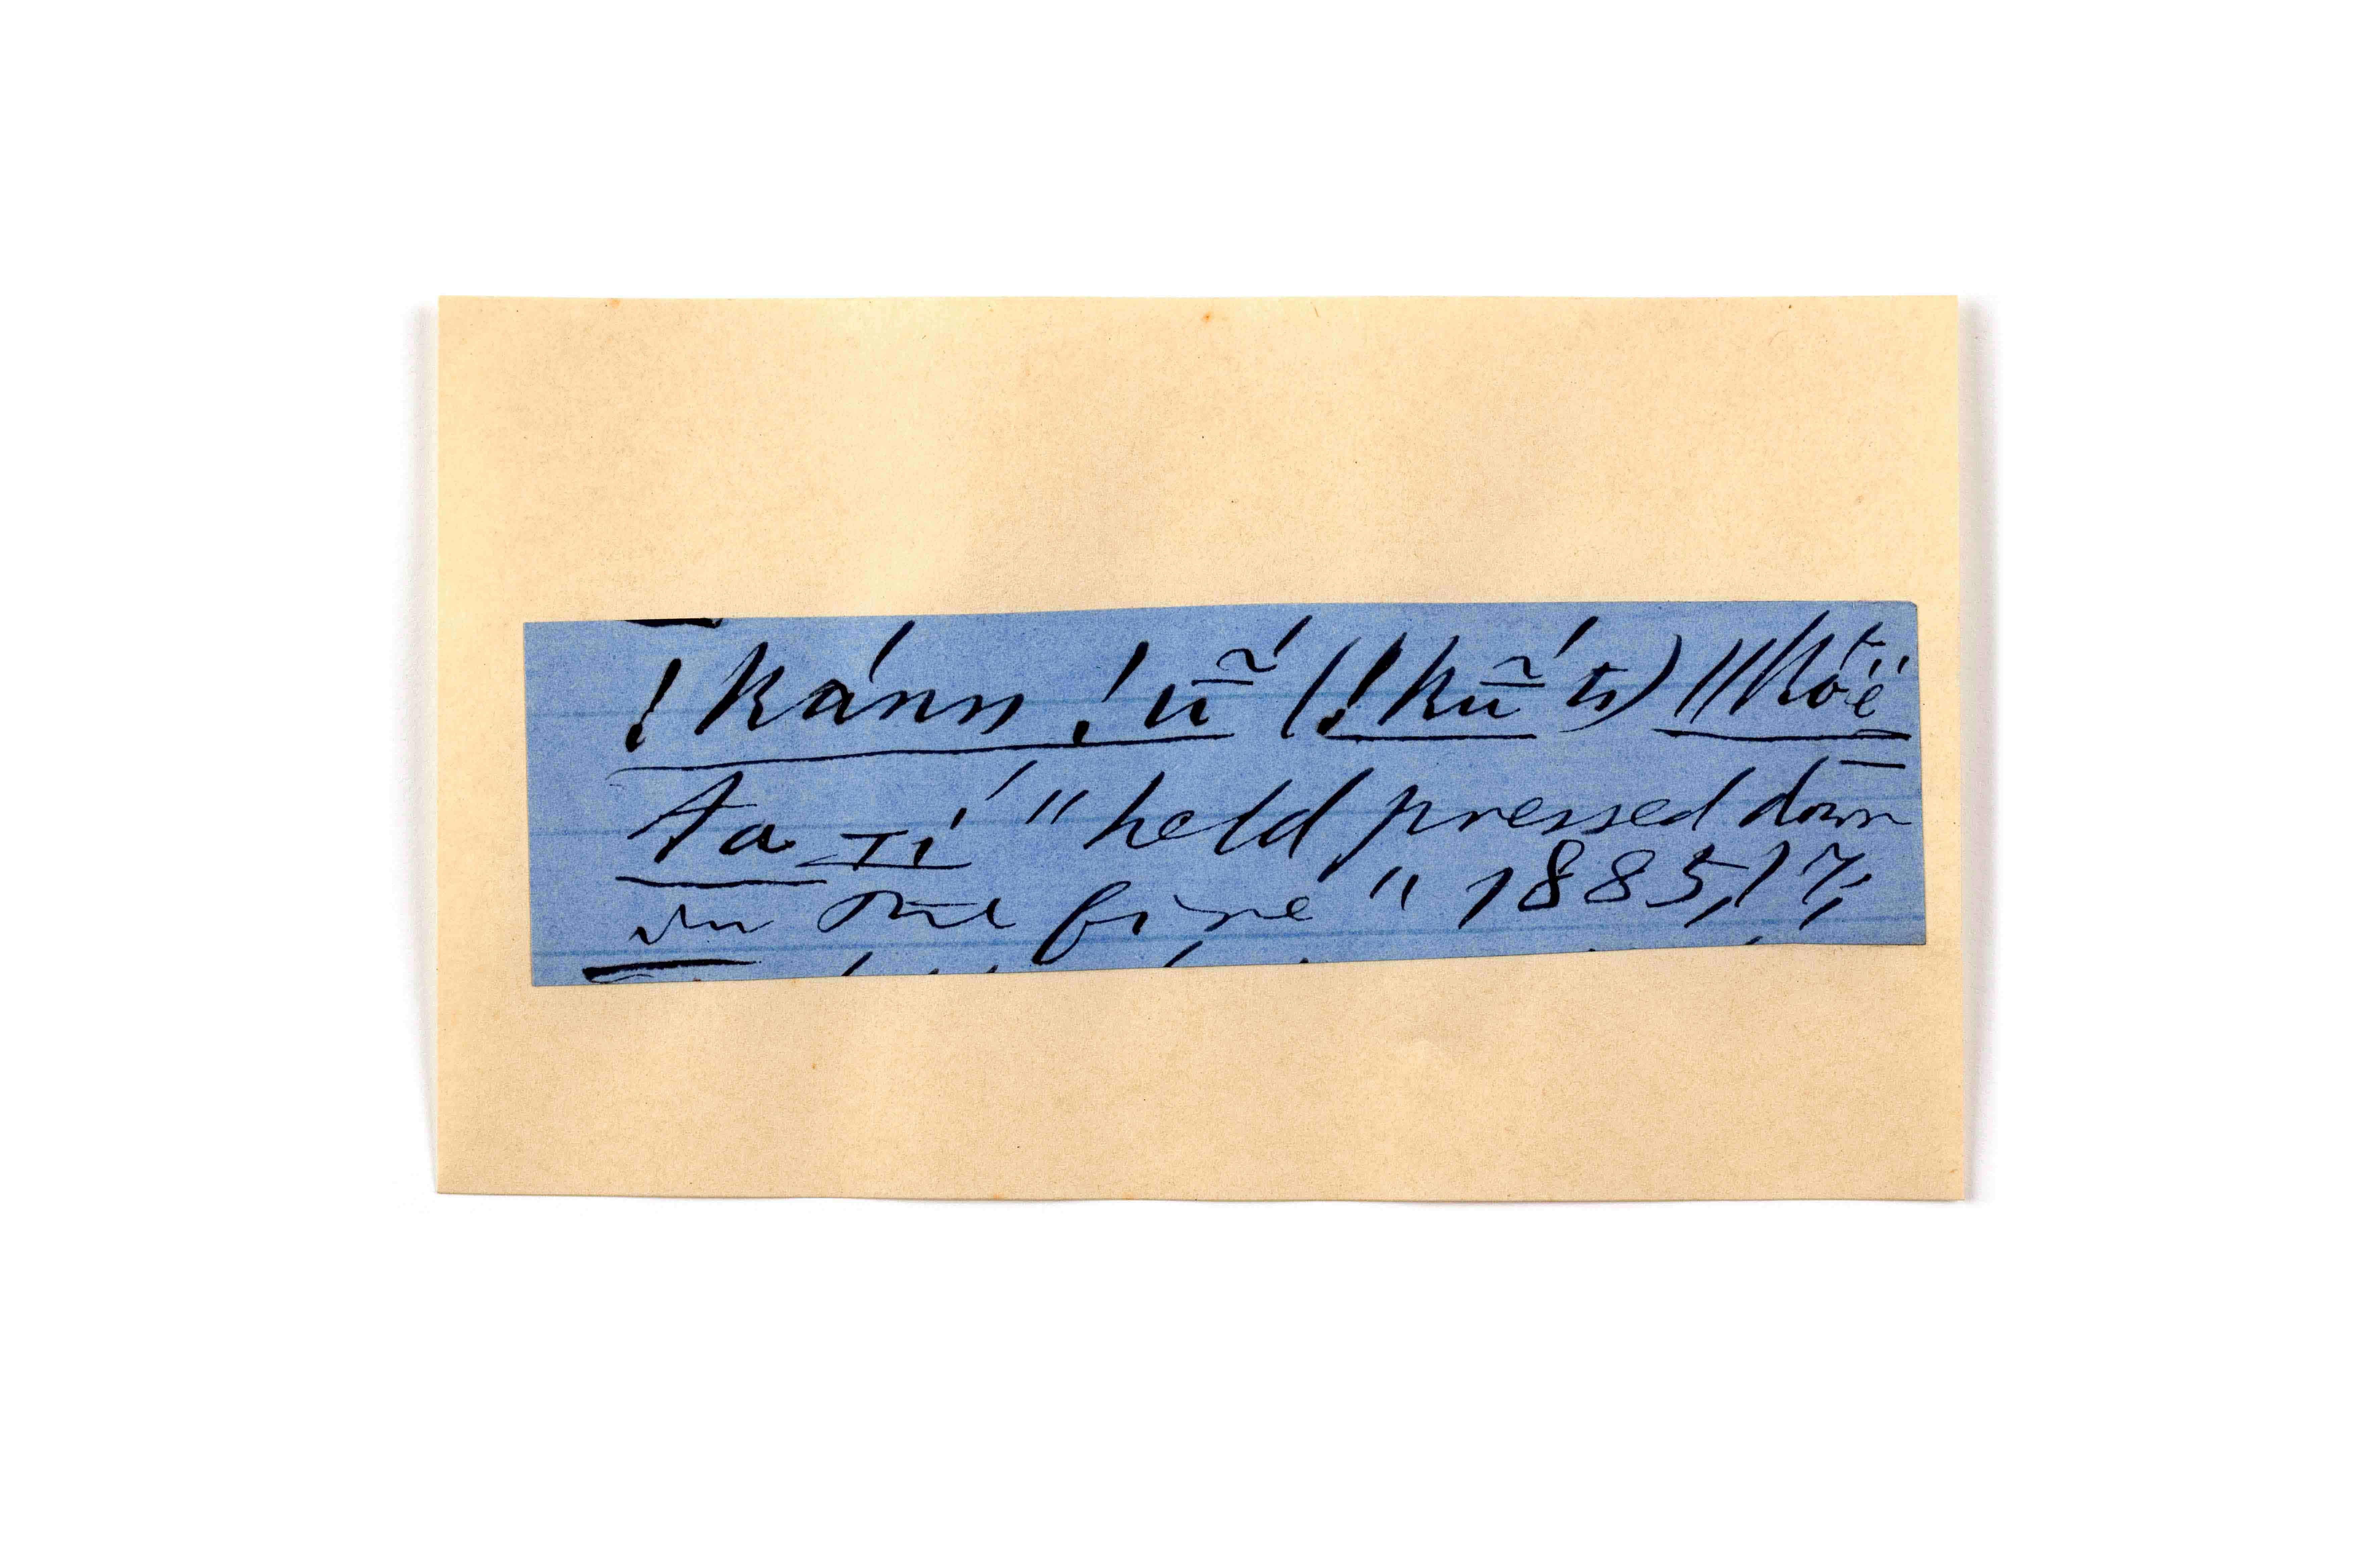 !kánn !ũ̄́ (!kũ̄́ ts) ||kȯé
ta <u>T</u>í " held pressed down
in the fire " 1885,17;